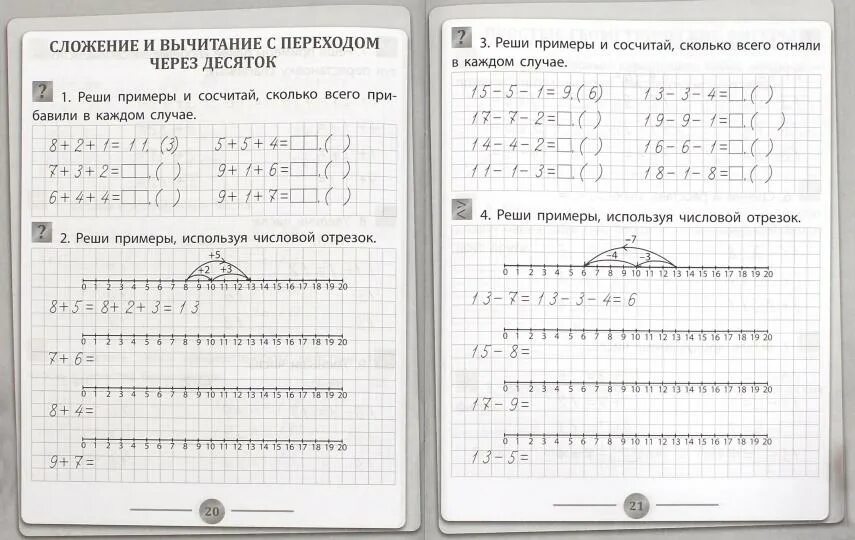 СЛОЖЕНИЕ И ВЫЧИТАНИЕ С ПЕРЕХОДОМ
ЧЕРЕЗ ДЕСЯТОК
? 1. Реши примеры и сосчитай, сколько всего при-
бавили в каждом случае.
8+2+1=11.(3) 5+5+4=□.( )
7+3+2=□.( ) 9+1+6=□.( )
6+4+4=□.( ) 9+1+7=□.( )
? 2. Реши примеры, используя числовой отрезок.
+5
+2 +3
0 1 2 3 4 5 6 7 8 9 10 11 12 13 14 15 16 17 18 19 20
8+5=8+2+3=13
0 1 2 3 4 5 6 7 8 9 10 11 12 13 14 15 16 17 18 19 20
7+6=
0 1 2 3 4 5 6 7 8 9 10 11 12 13 14 15 16 17 18 19 20
8+4=
0 1 2 3 4 5 6 7 8 9 10 11 12 13 14 15 16 17 18 19 20
9+7=
20
? 3. Реши примеры и сосчитай, сколько всего отняли
в каждом случае.
15-5-1=9.(6) 13-3-4=□.( )
17-7-2=□.( ) 19-9-1=□.( )
14-4-2=□.( ) 16-6-1=□.( )
11-1-3=□.( ) 18-1-8=□.( )
4. Реши примеры, используя числовой отрезок.
-7
-4 -3
0 1 2 3 4 5 6 7 8 9 10 11 12 13 14 15 16 17 18 19 20
13-7=13-3-4=6
0 1 2 3 4 5 6 7 8 9 10 11 12 13 14 15 16 17 18 19 20
15-8=
0 1 2 3 4 5 6 7 8 9 10 11 12 13 14 15 16 17 18 19 20
17-9=
0 1 2 3 4 5 6 7 8 9 10 11 12 13 14 15 16 17 18 19 20
13-5=
21